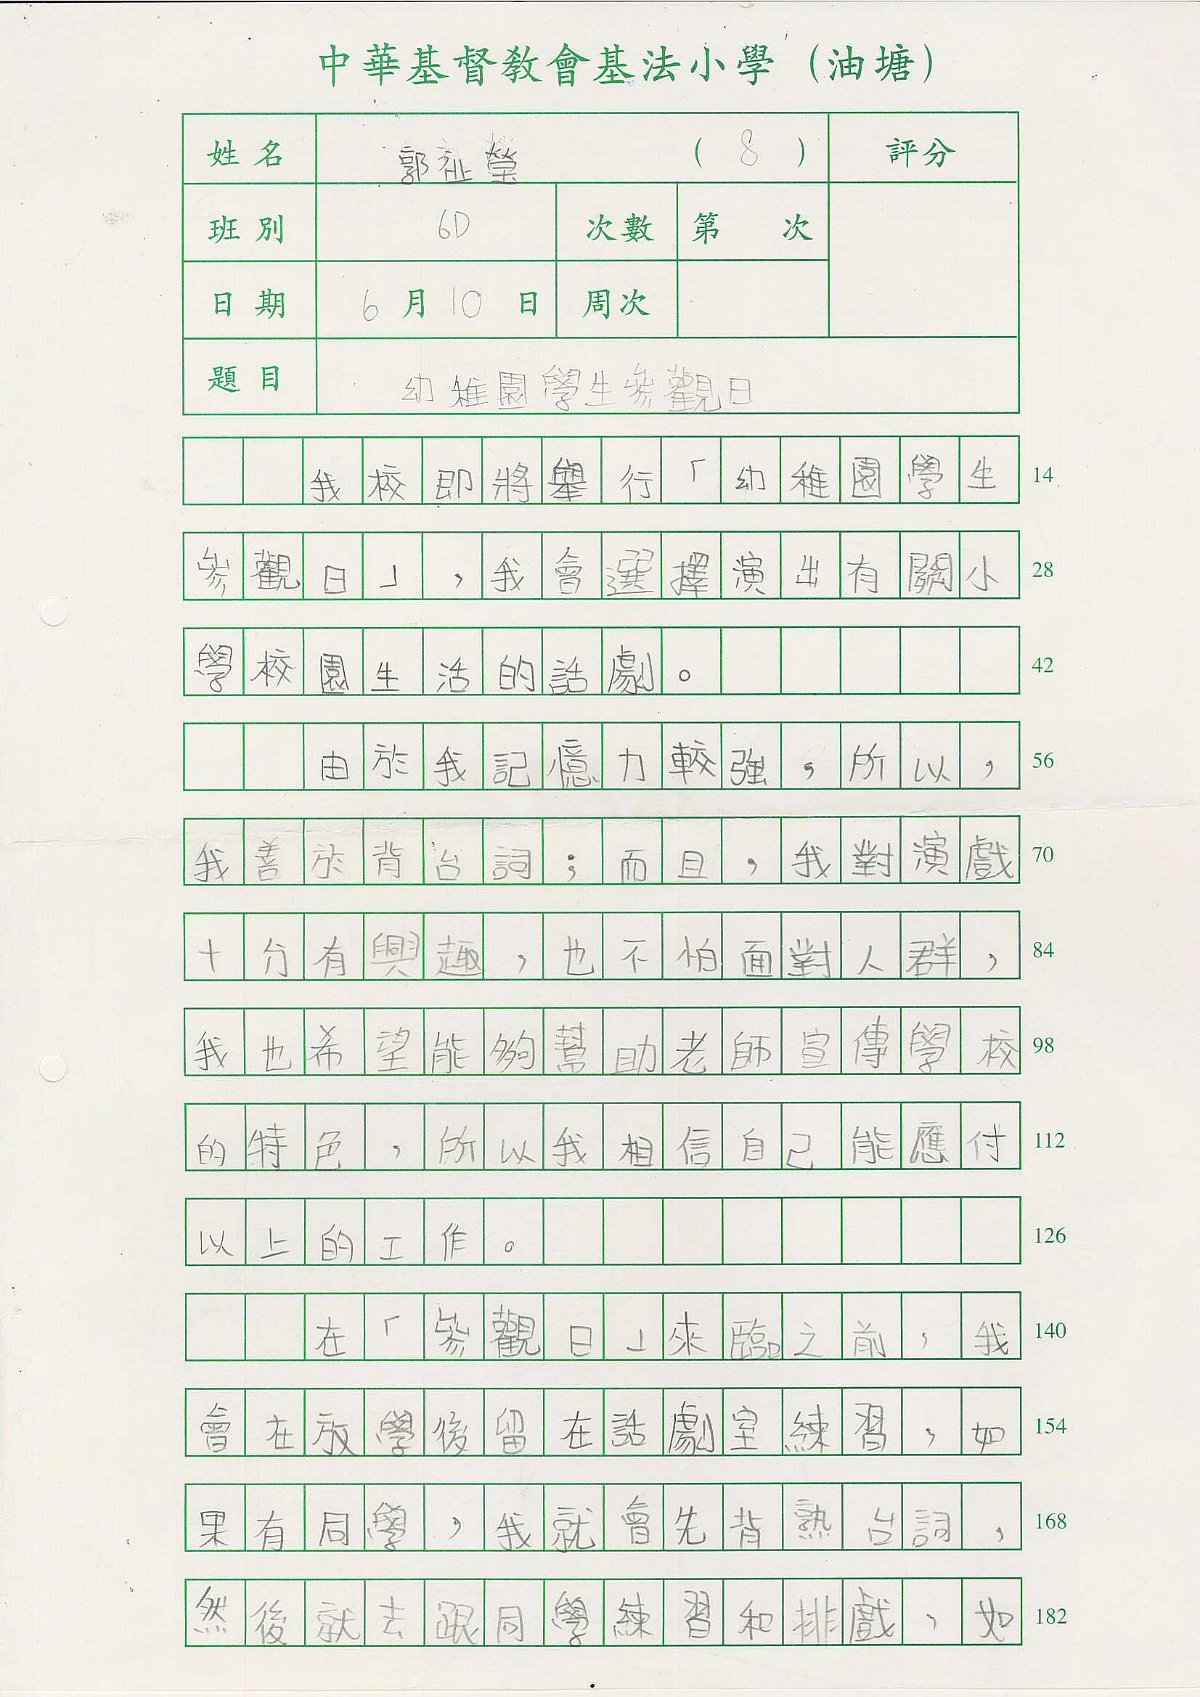 中華基督教會基法小學（油塘）
姓名 郭祉瑩 （8） 評分
班別 6D 次數 第 次
日期 6月10日 周次
題目 幼稚園學生參觀日
我校即將舉行「幼稚園學生 14
參觀日」，我會選擇演出有關小 28
學校園生活的話劇。 42
由於我記憶力較強，所以， 56
我善於背台詞；而且，我對演戲 70
十分有興趣，也不怕面對人群， 84
我也希望能夠幫助老師宣傳學校 98
的特色，所以我相信自己能應付 112
以上的工作。 126
在「參觀日」來臨之前，我 140
會在放學後留在話劇室練習，如 154
果有同學，我就會先背熟台詞， 168
然後就去跟同學練習和排戲，如 182